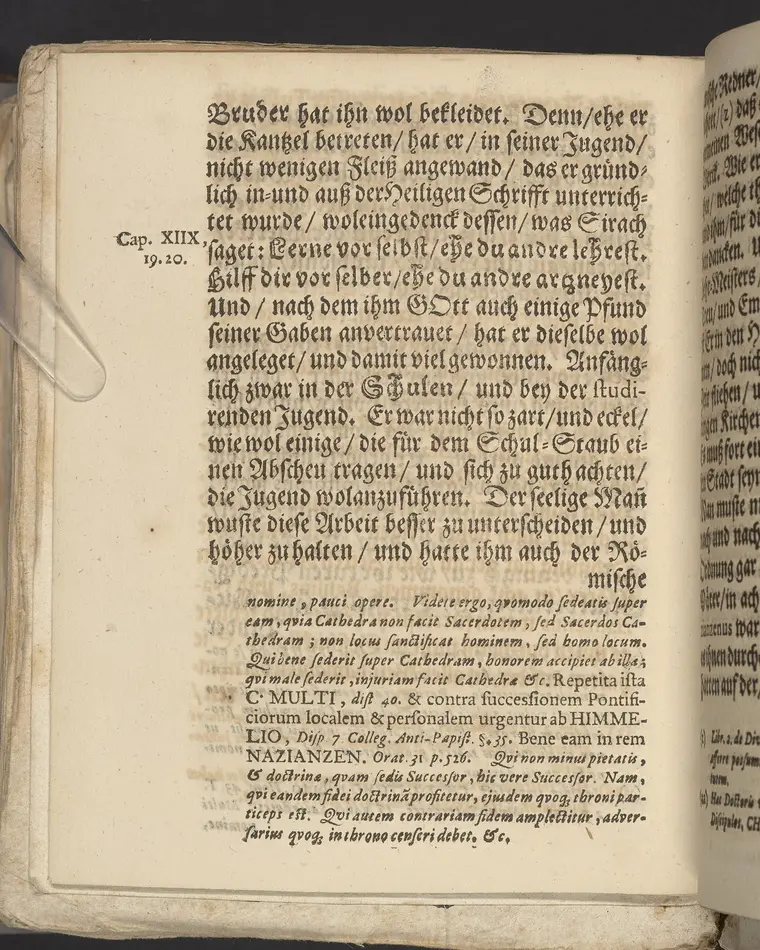 Bruder hat ihn wol bekleidet. Denn/ehe er
die Kantzel betreten/ hat er/ in seiner Jugend/
nicht wenigen Fleiß angewand/ das er gründ-
lich in-und auß der Heiligen Schrifft unterrich-
tet wurde/ woleingedenck dessen/ was Sirach
Cap. XIIX, 19. 20.
saget: Lerne vor selbst/ehe du andre lehrest.
Hilff dir vor selber/ehe du andre artzneyest.
Und/ nach dem ihm GOtt auch einige Pfund
seiner Gaben anvertrauet/ hat er dieselbe wol
angeleget/ und damit viel gewonnen. Anfäng-
lich zwar in der Schulen/ und bey der studi-
renden Jugend. Er war nicht so zart/und eckel/
wie wol einige/ die für dem Schul-Staub ei-
nen Abscheu tragen/ und sich zu guth achten/
die Jugend wolanzuführen. Der seelige Mañ
wuste diese Arbeit besser zu unterscheiden/ und
höher zu halten/ und hatte ihm auch der Rö-
mische
nomine, pauci opere. Videte ergo, qvomodo sedeatis super
eam, qvia Cathedra non facit Sacerdotem, sed Sacerdos Ca-
thedram; non locus sanctificat hominem, sed homo locum.
Qui bene sederit super Cathedram, honorem accipiet ab illa;
qvi male sederit, injuriam facit Cathedræ &c. Repetita ista
C. MULTI, dist 40. & contra successionem Pontifi-
ciorum localem & personalem urgentur ab HIMME-
LIO, Disp 7 Colleg. Anti-Papist. §. 35. Bene eam in rem
NAZIANZEN. Orat. 31 p. 526. Qvi non minus pietatis,
& doctrinæ, qvam sedis Successor, hic vere Successor. Nam,
qvi eandem fidei doctrinã profitetur, ejusdem qvoq; throni par-
ticeps est. Qvi autem contrariam fidem amplectitur, adver-
sarius qvoq; in throno censeri debet. &c.